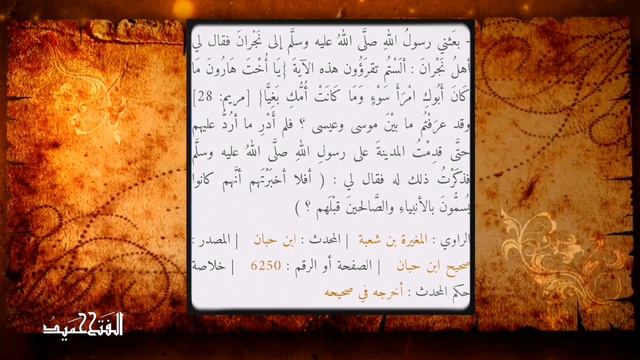 - بعَثني رسولُ اللهِ صلَّى اللهُ عليه وسلَّم إلى نَجْرانَ فقال لي
أهلُ نَجْرانَ : ألَسْتُم تقرَؤُون هذه الآيةَ {يَا أُخْتَ هَارُونَ مَا
كَانَ أَبُوكِ امْرَأَ سَوْءٍ وَمَا كَانَتْ أُمُّكِ بَغِيًّا} [مريم: 28]
وقد عرَفْتُم ما بيْنَ موسى وعيسى ؟ فلم أَدْرِ ما أرُدُّ عليهم
حتَّى قدِمْتُ المدينةَ على رسولِ اللهِ صلَّى اللهُ عليه وسلَّم
فذكَرْتُ ذلك له فقال لي : ( أفلا أخبَرْتَهم أنَّهم كانوا
يُسمُّونَ بالأنبياءِ والصَّالحينَ قبْلَهم ؟ )
الراوي : المغيرة بن شعبة | المحدث : ابن حبان | المصدر :
صحيح ابن حبان | الصفحة أو الرقم : 6250 | خلاصة
حكم المحدث : أخرجه في صحيحه
الفتح حميد